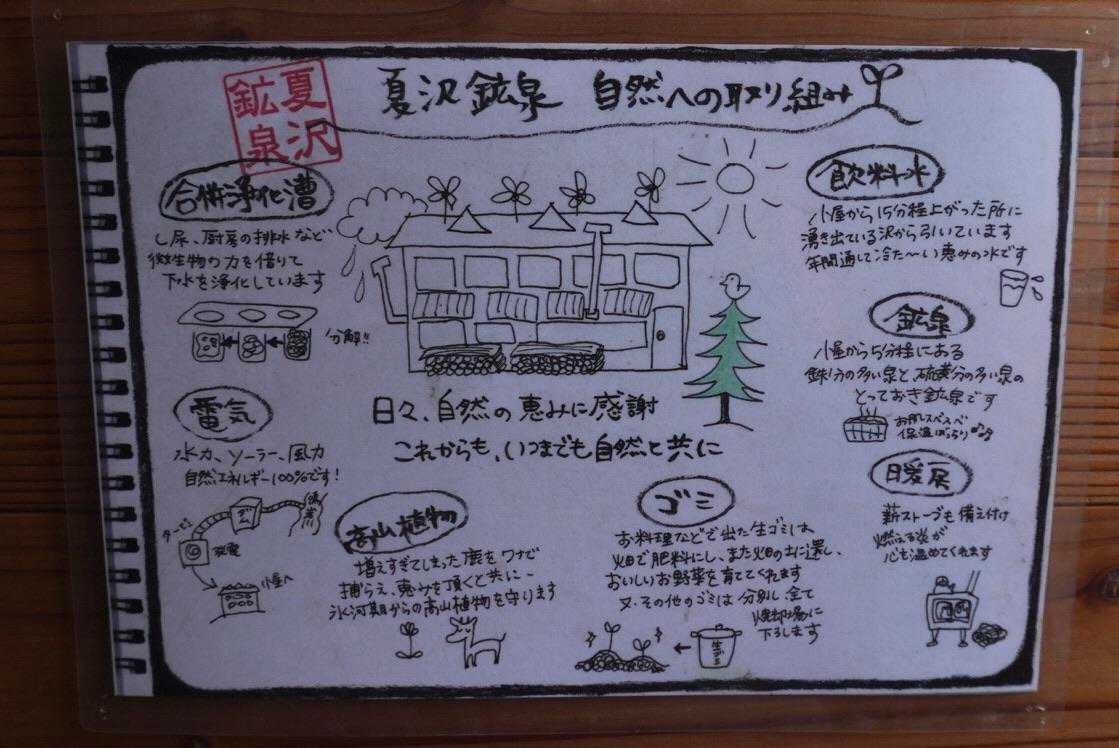 夏沢
鉱泉
夏沢鉱泉 自然への取り組み
合併浄化漕
し尿、厨房の排水など
微生物の力を借りて
下水を浄化しています
分解!!
電気
水力、ソーラー、風力
自然エネルギー100%です!
タービン
ダム
発電
小屋へ
日々、自然の恵みに感謝
これからも、いつまでも自然と共に
高山植物
増えすぎてしまった鹿をワナで
捕らえ、恵みを頂くと共に、
氷河期からの高山植物を守ります
ゴミ
お料理などで出た生ゴミは
畑で肥料にし、また畑の土に還し、
おいしいお野菜を育ててくれます
又、その他のゴミは分別し全て
焼却場に
下ろします
生ゴミ
飲料水
小屋から15分程上がった所に
湧き出ている沢から引いています
年間通して冷た〜い恵みの水です
鉱泉
小屋から5分程にある
鉄分の多い泉と、硫黄分の多い泉の
とっておき鉱泉です
お肌スベスベ
保温ばっちり♪♪
暖房
薪ストーブも備え付け
燃える炎が
心も温めてくれます